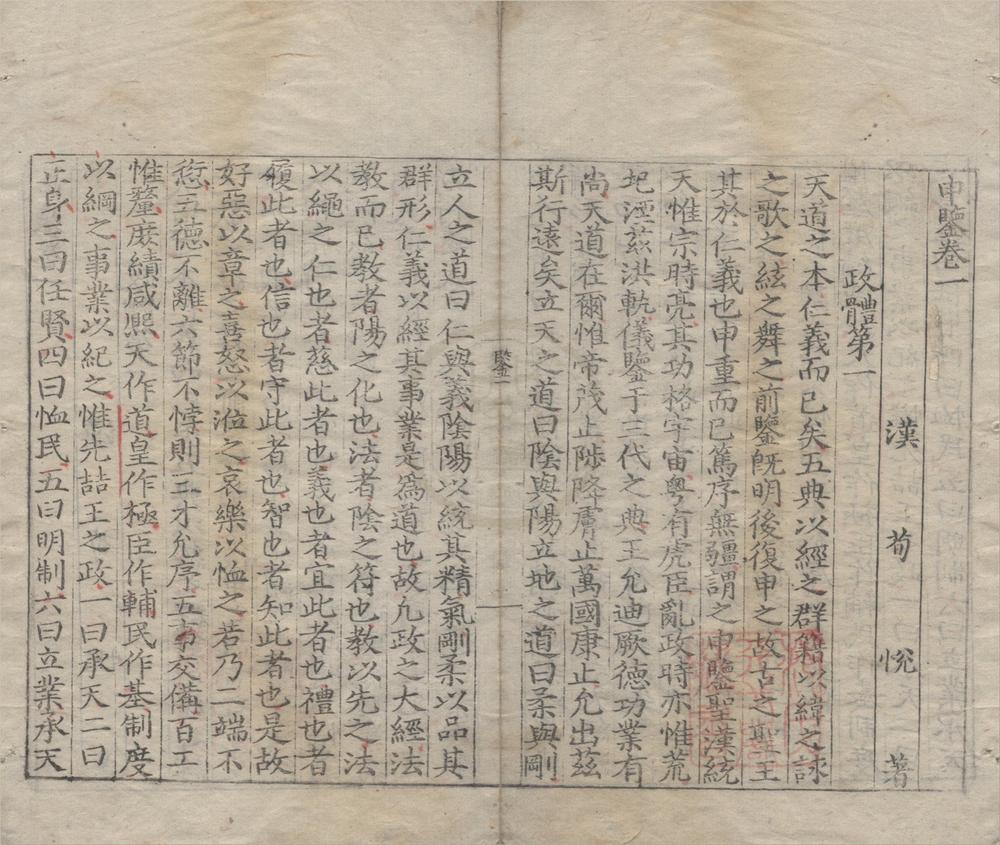 申鑒卷一
漢 荀 悅 著
政體第一
天道之本仁義而已矣五典以經之群籍以緯之詠
之歌之絃之舞之前鑒旣明後復申之故古之聖王
其於仁義也申重而已篤序無疆謂之申鑒聖漢統
天惟宗時亮其功格宇宙粤有虎臣亂政時亦惟荒
圯湮茲洪軌儀鑒于三代之典王允迪厥德功業有
尚天道在爾惟帝茂止陟降膚止萬國康止允出茲
斯行遠矣立天之道曰陰與陽立地之道曰柔與剛
鑒一
立人之道曰仁與義陰陽以統其精氣剛柔以品其
群形仁義以經其事業是爲道也故凡政之大經法
教而已教者陽之化也法者陰之符也教以先之法
以繩之仁也者慈此者也義也者宜此者也禮也者
履此者也信也者守此者也智也者知此者也是故
好惡以章之喜怒以涖之哀樂以恤之若乃二端不
愆五德不離六節不悖則三才允序五事交備百工
惟釐庶績咸熙天作道皇作極臣作輔民作基制度
以綱之事業以紀之惟先喆王之政一曰承天二曰
正身三曰任賢四曰恤民五曰明制六曰立業承天